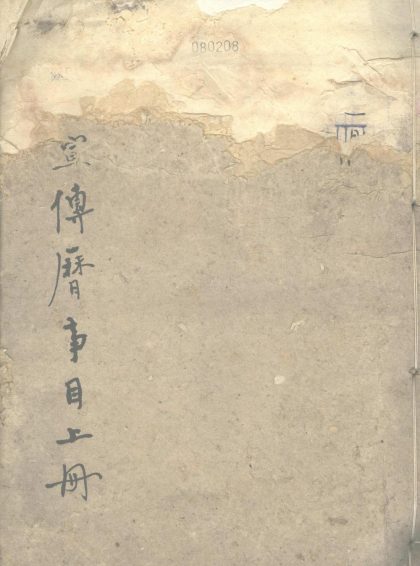 080208
宣傳曆事目上冊